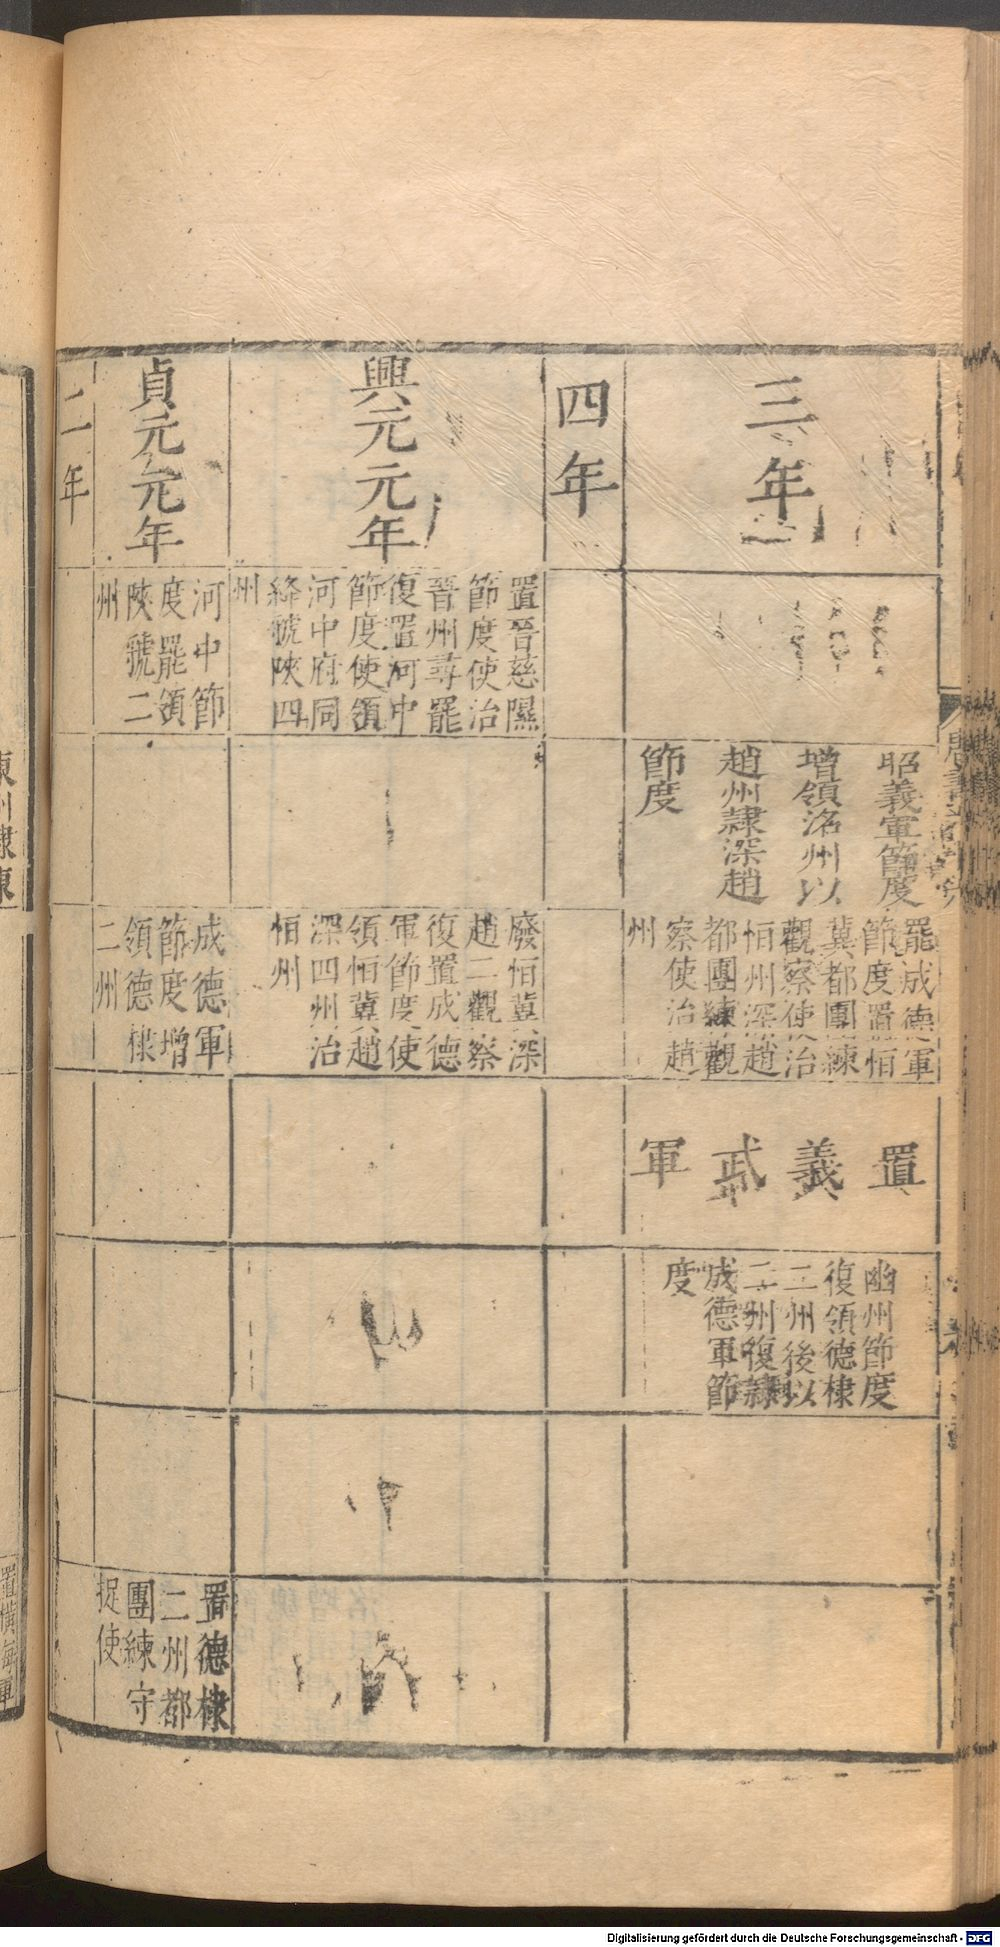 三年
昭義軍節度
增領洺州以
趙州隸深趙
節度
罷成德軍
節度置恒
冀都團練
觀察使治
恒州深趙
都團練觀
察使治趙
州
置
義
武
軍
幽州節度
復領德棣
二州後以
二州復隸
成德軍節
度
四年
興元元年
置晉慈隰
節度使治
晉州尋罷
復置河中
節度使領
河中府同
絳虢陝四
州
廢恒冀深
趙二觀察
復置成德
軍節度使
領恒冀趙
深四州治
恒州
貞元元年
河中節
度罷領
陝虢二
州
成德軍
節度增
領德棣
二州
置德棣
二州都
團練守
捉使
二年
置橫海軍
Digitalisierung gefördert durch die Deutsche Forschungsgemeinschaft - DFG